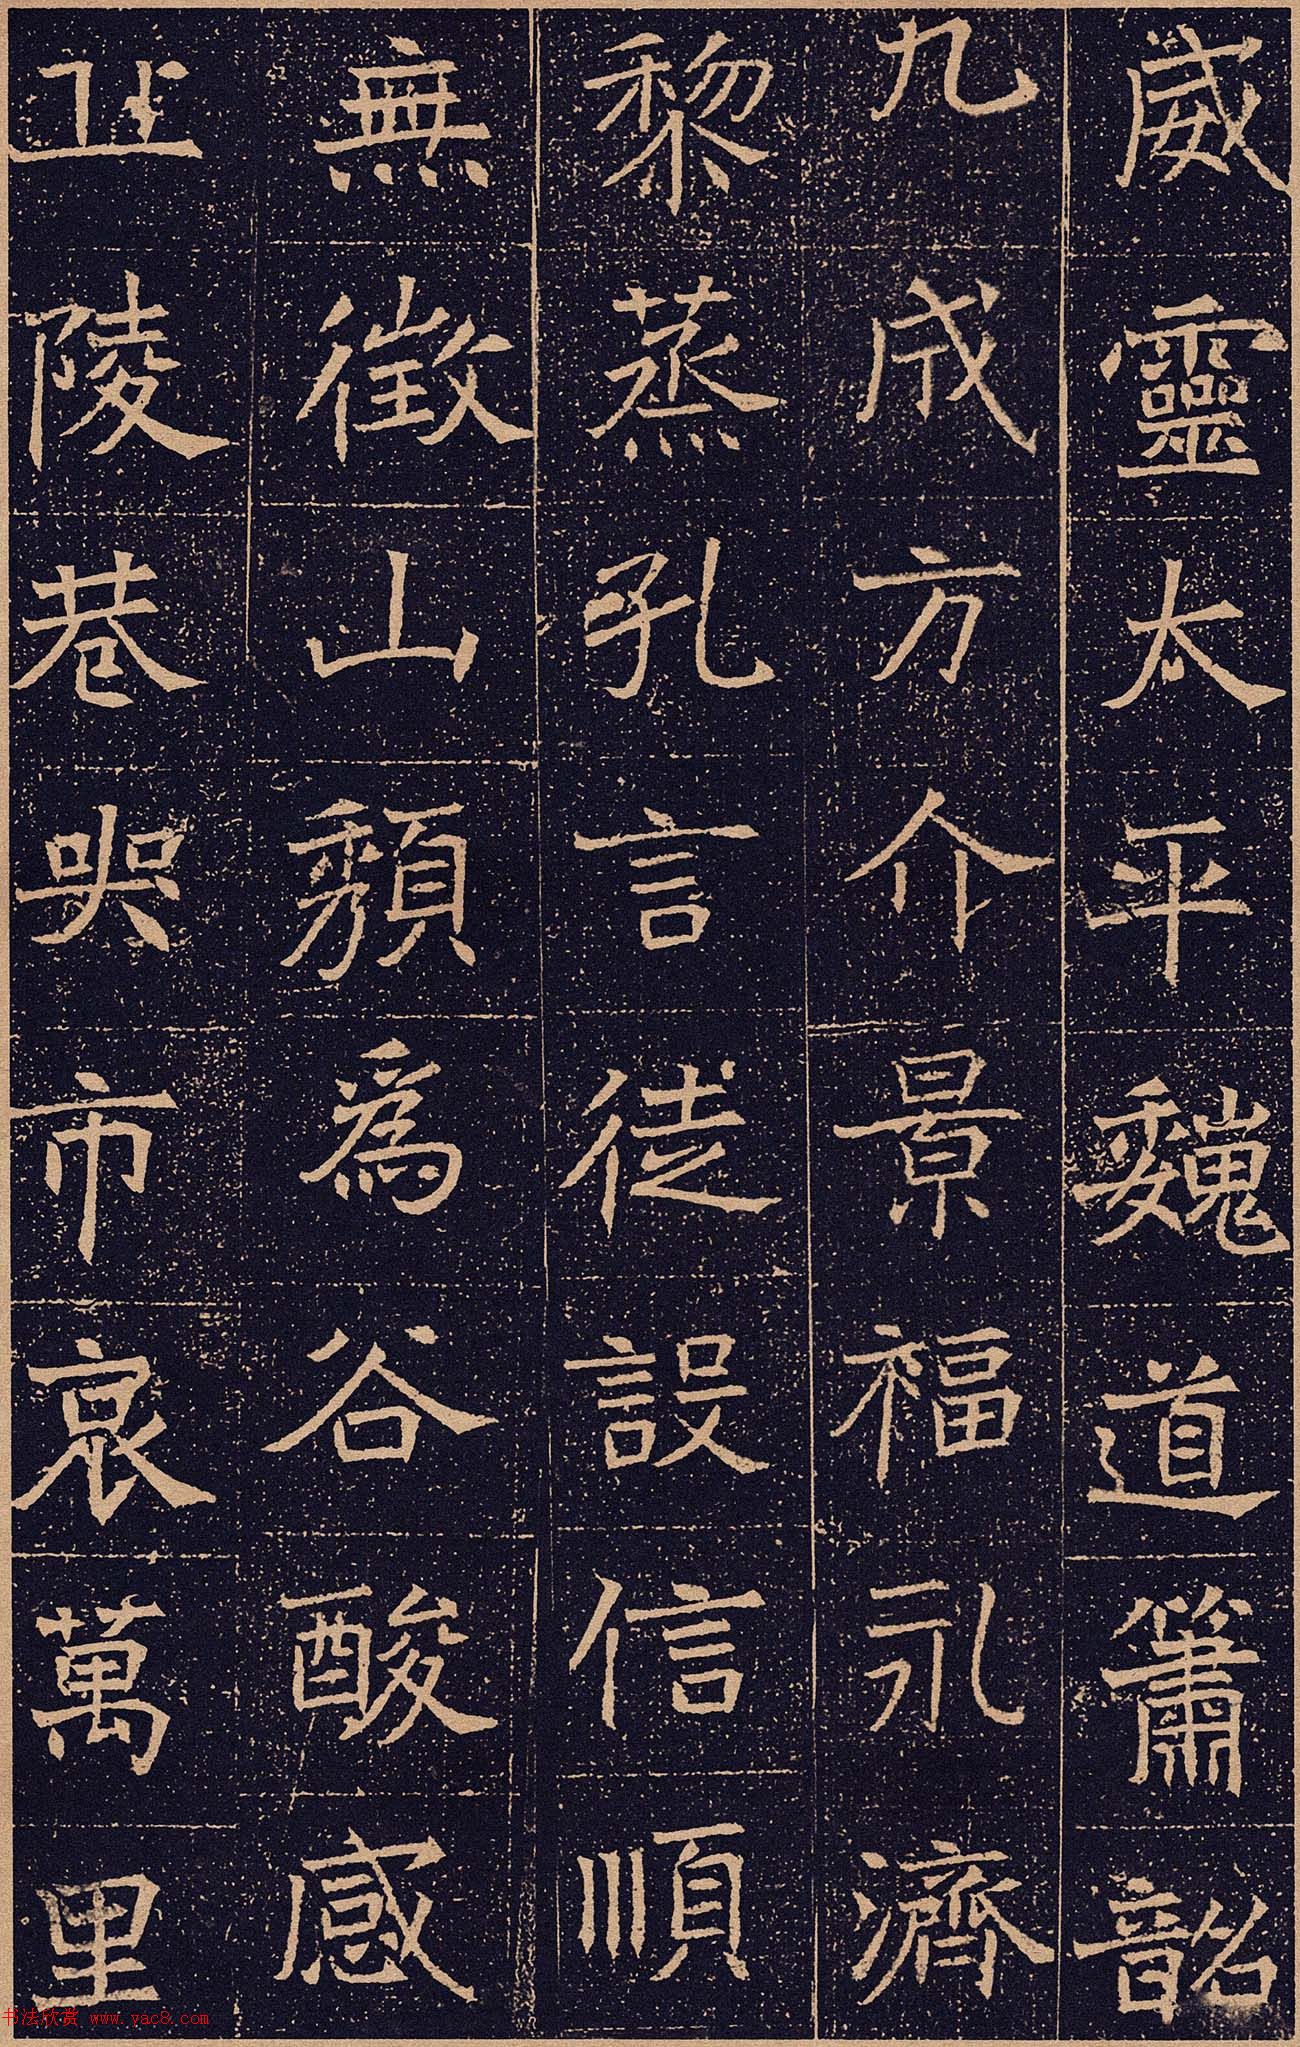 威靈太平巍道簫韶
九成方介景福永濟
黎蒸孔言徒設信順
無徵山頹為谷酸感
丘陵巷哭市哀萬里
书法欣赏 www.yac8.com